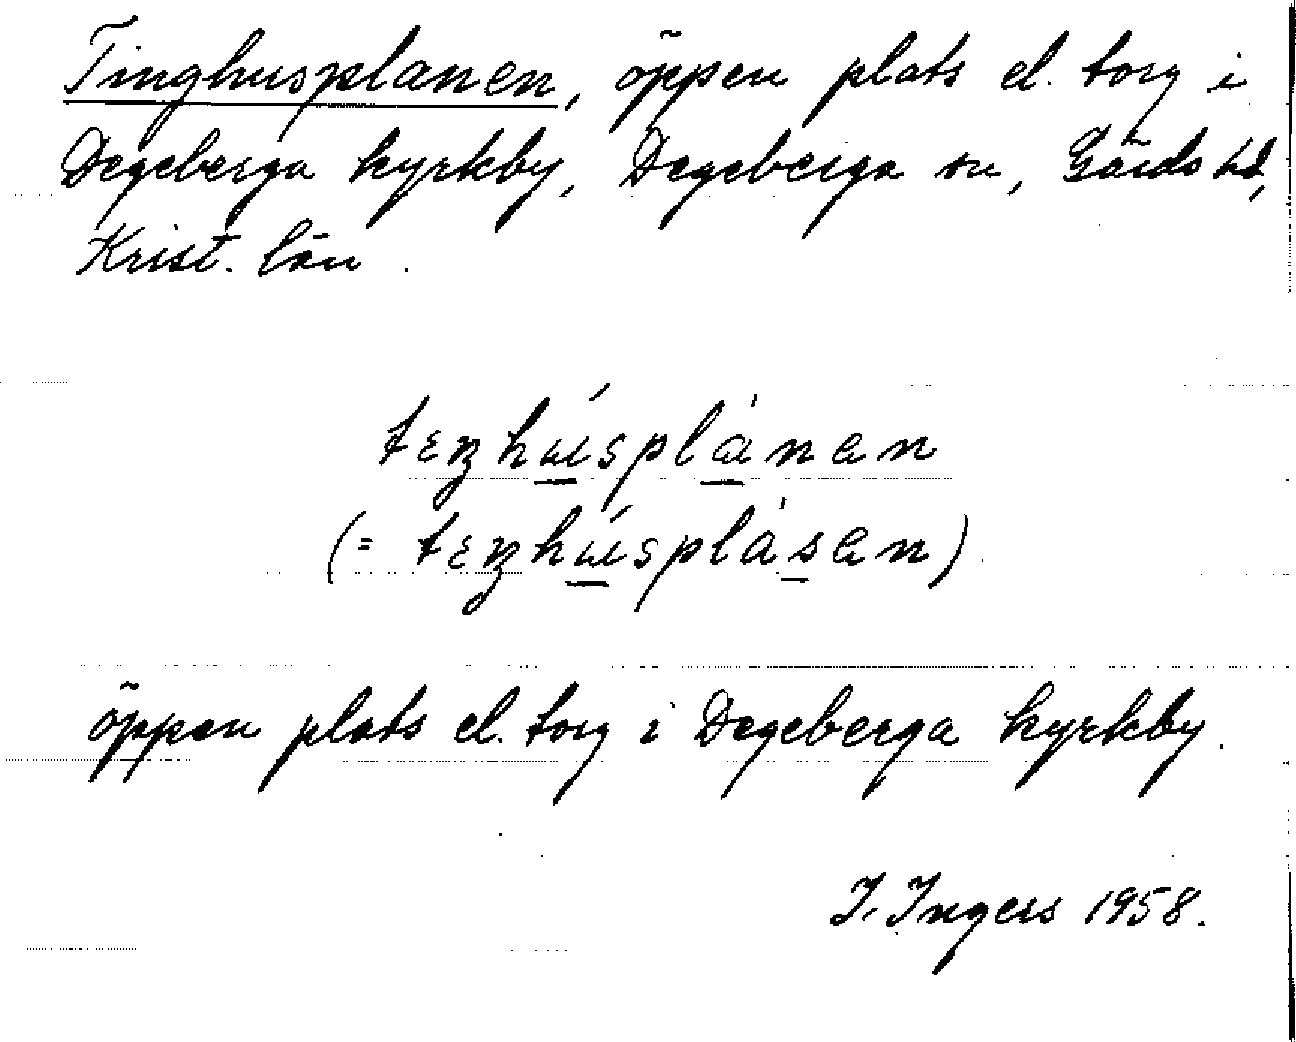 Tinghusplanen, öppen plats el. torg i
Degeberga kyrkby, Degeberga sn, Gärds hd,
Krist. län.
öppen plats el. torg i Degeberga kyrkby.
I. Ingers 1958.